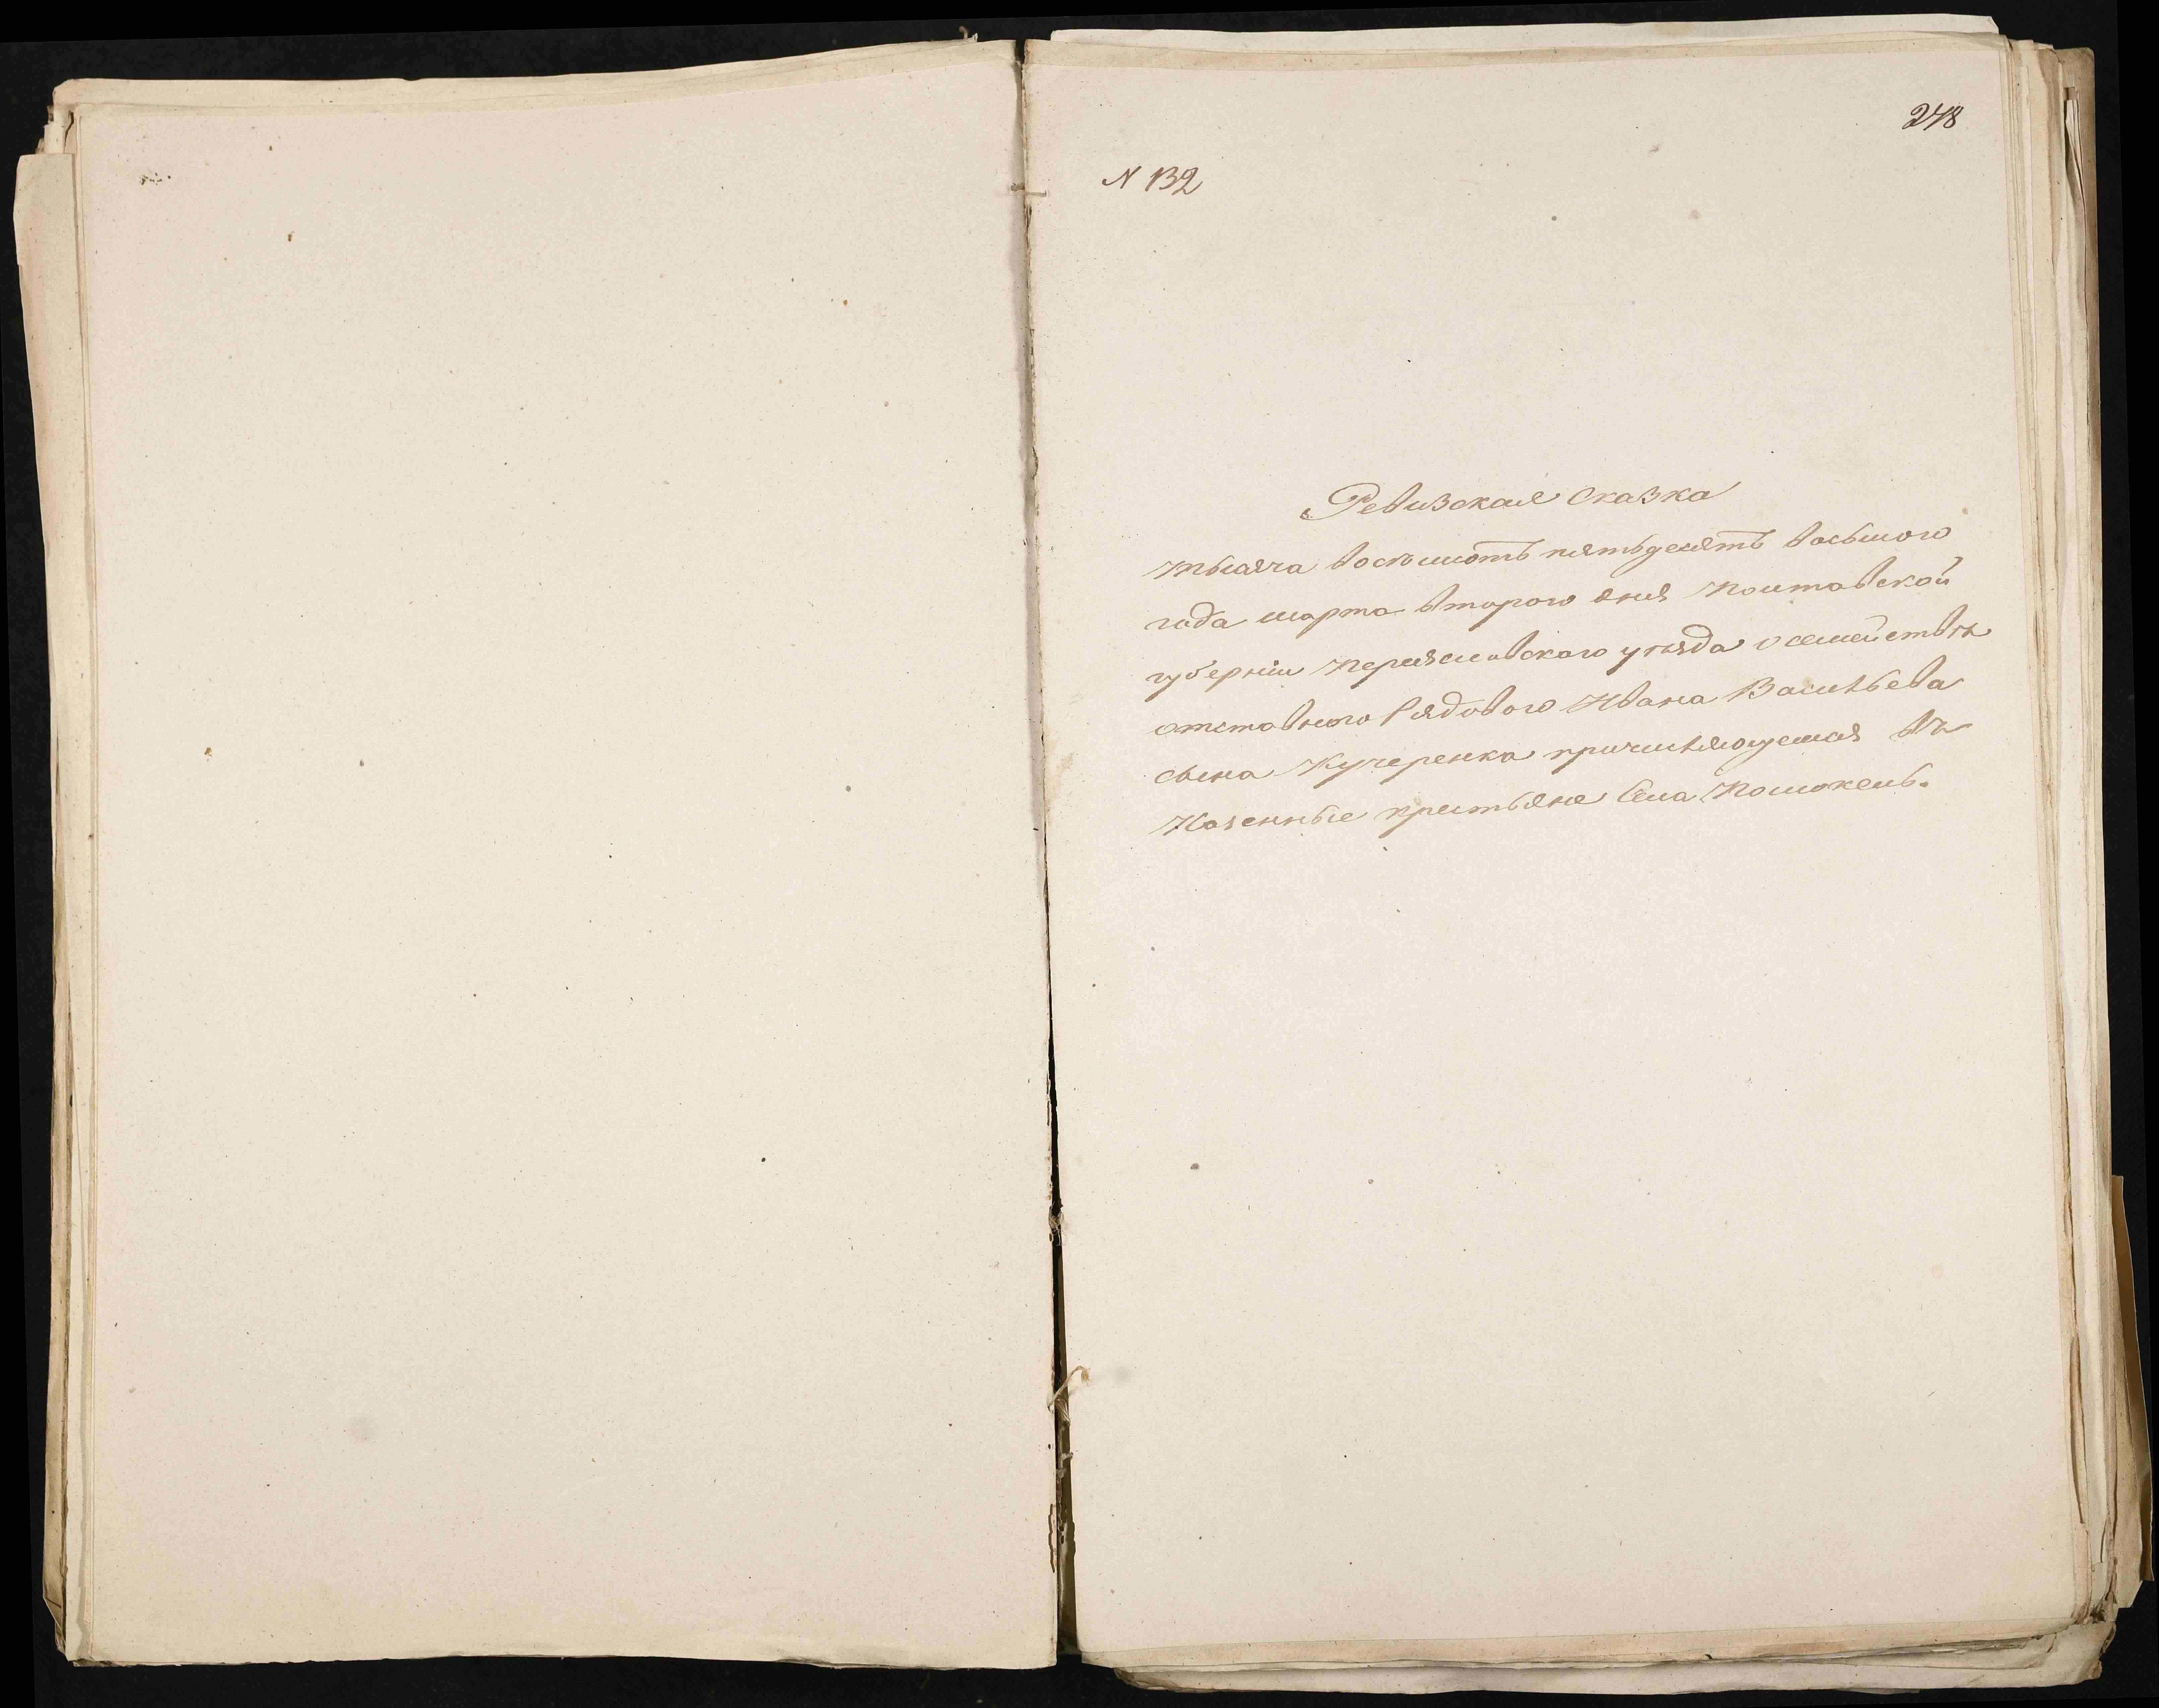 248
N 132
Ревизская Сказка
тысяча восъмсотъ пятьдесятъ восьмого
года марта второго дня Полтавской
губерніи Переясловского уѣзда о семействѣ
отставного Рядового Ивана Васильева
сына Кучеренка причисляющемся въ
Казенные крестьяне Села Помоклеь.